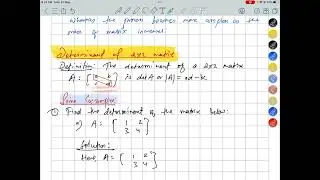 Whereas the process becomes more complex as the
order of matrix increases.
Determinant of 2x2 matrix
Definition: The determinant of a 2x2 matrix
A = [a b
c d] is det A or |A| = ad-bc
Some Examples
① Find the determinant of the matrix below:
a) A = [1 2
3 4]
Solution:
Here, A = [1 2
3 4]